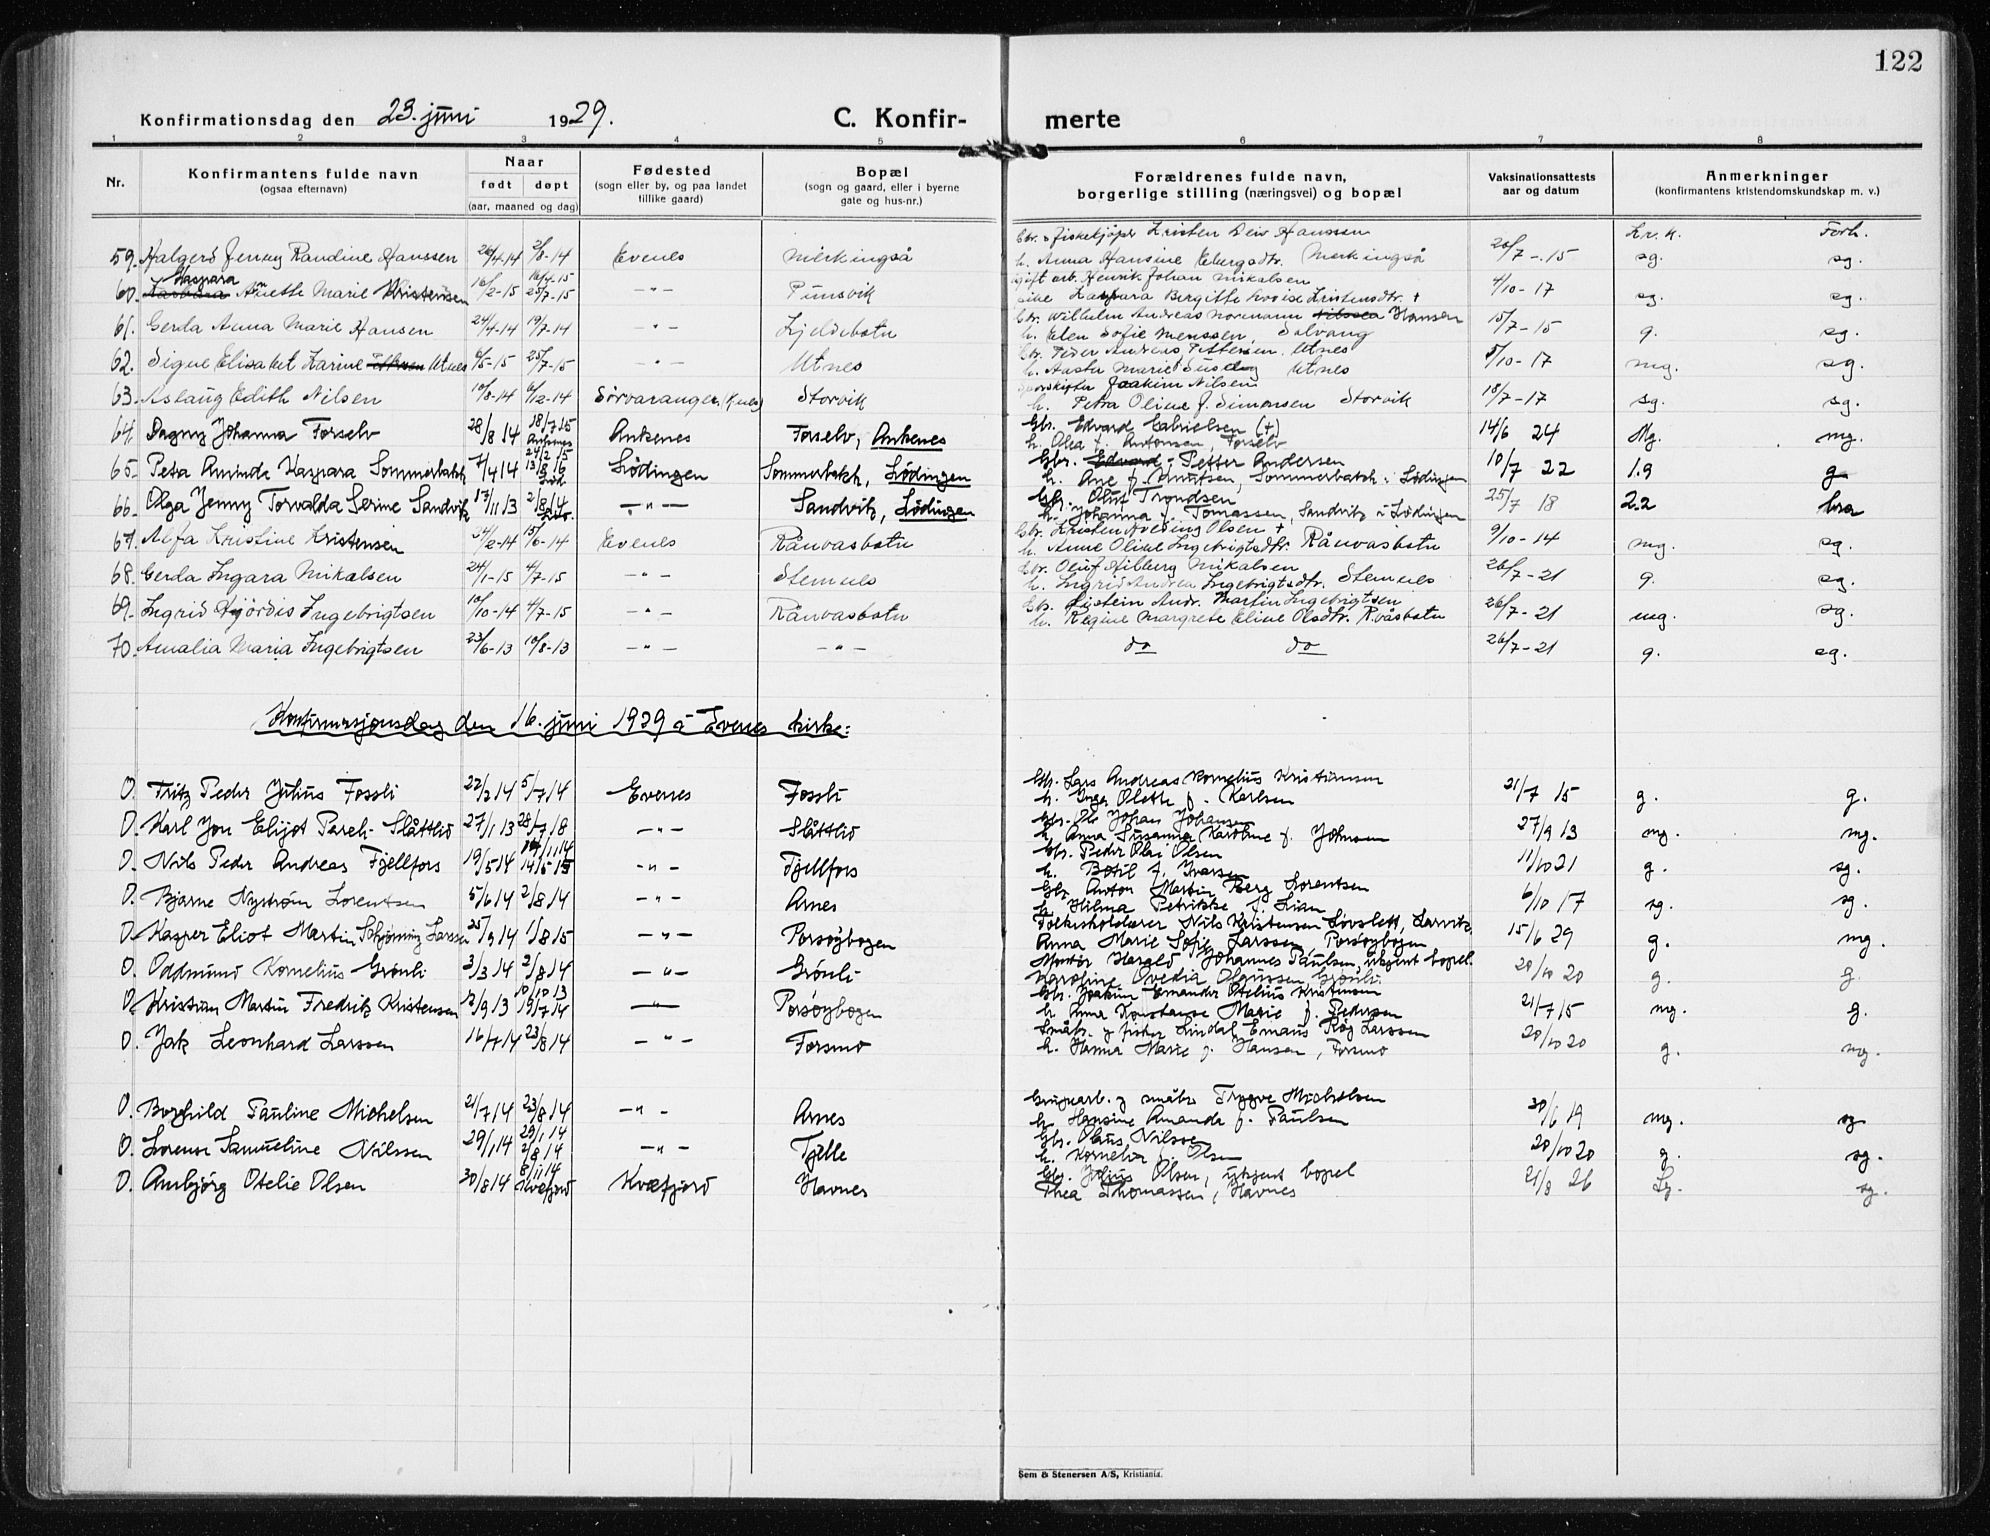 122
Konfirmationsdag den 23. juni 1929. C. Konfir- merte
1 2 3 4 5 6 7 8
Nr. Konfirmantens fulde navn (ogsaa efternavn) Naar født døpt (aar, maaned og dag) Fødested (sogn eller by, og paa landet tillike gaard) Bopæl (sogn og gaard, eller i byerne gate og hus-nr.) Forældrenes fulde navn, borgerlige stilling (næringsvei) og bopæl Vaksinationsattests aar og datum Anmerkninger (konfirmantens kristendomskundskap m. v.)
Gbr. o fiskekjøper Kristen Hanssen Kr. k. Forh.
59. Halgerd Jenny Randine Hanssen 26/4-14 2/8-14 Evenes h. Anna Hansine 20/7-15 sg. sg.
Kaspara 16/4-15 gift arb. Henrik Johan Mikalsen
60. Anette Marie Kristensen 16/2-15 25/7-15 -"- Punsvik Kaspara Bergitte Lovise Kristensdtr. + 4/10-17 sg. sg.
Gbr. Wilhelm Andreas Normann Hansen
61. Gerda Anna Marie Hansen 24/4-14 19/7-14 -"- Kjeldebotn h. Elen Sofie Solvang 15/7-15 g. sg.
Gbr. Peder Andreas Pettersen Utnes
62. Signe Elisabet Karine Utnes 6/5-15 25/7-15 -"- Utnes h. Marie Utnes 5/10-17 mg. sg.
Joakim Nilsen
63. Aslaug Edith Nilsen 10/8-14 6/12-14 Sørvaranger Storvik h. Petra Oline f. Simonsen Storvik 18/7-17 sg. sg.
Gbr. Edvard Gabrielsen (+)
64. Dagny Johanna Forselv 28/8 14 18/7 15 Ankenes Ankenes Forselv, Ankenes h. Olea f. Antonsen, Forselv 14/6 24 Mg. mg.
Gbr. Edvard Petter Andersen
65. Petra Aminda Kaspara Sommerbakk 7/4 14 Lødingen Sommerbakk, Lødingen h. Ane f. Knutsen, Sommerbakk i Lødingen 10/7 22 1.9 g
Gbr. Oluf Trondsen
66. Olga Jenny Torvalda Serine Sandvik 17/11 13 2/8 14 -"- Sandvik, Lødingen h. Johanna f. Tomassen, Sandvik i Lødingen 25/7 18 2.2 bra
Gbr. Kristen Olsen +
67. Alfa Kristine Kristensen 24/2-14 15/6-14 Evenes Rånvasbotn h. Anne Oline Ingebrigtsdtr. Rånvasbotn 9/10-14 mg. sg.
Gbr. Oluf Mikalsen
68. Gerda Ingara Mikalsen 24/1-15 4/7-15 -"- Stemnes h. Ingrid Andrea Ingebrigtsdtr. Stemnes 26/7-21 g. sg.
Gbr. Eistein Andr. Martin Ingebrigtsen
69. Ingrid Hjördis Ingebrigtsen 10/10-14 4/7-15 -"- Rånvasbotn h. Regine Margrete Eline Olsdtr. 26/7-21 mg. sg.
70. Amalia Maria Ingebrigtsen 23/6-13 10/8-13 -"- -"- do do 26/7-21 g. sg.
Konfirmasjonsdag den 16. juni 1929 i Evenes kirke:
Gbr. Lars Andreas Kornelius Kristiansen
0. Fritz Peder Julius Fossli 22/2 14 5/7 14 Evenes Fossli h. Inga Oleth f. Karlsen 21/7 15 g. g.
Gbr. Ole Johan Johansen
0. Karl Jon Elijot Slåttlid 27/1 13 28/7 18 -"- Slåttlid h. Anna Susanna Karoline f. Johnsen 27/9 13 mg. mg.
Gbr. Peder Olai Olsen
0. Nils Peder Andreas Fjellfors 19/5 14 -"- Fjellfors h. Botil f. Ivarsen 11/10 21 g. sg.
Gbr. Anton Martin Berg Lorentsen
0. Bjarne Nystrøm Lorentsen 5/6 14 2/8 14 -"- Arnes h. Hilma Petrikke f. Lian 6/10 17 sg. sg.
Nils Kristensen Lovslett, Larvik
0. Kasper Eliot Martin Schjøning Larssen 25/9 14 1/8 15 -"- Porsøybogen Anna Marie Sofie Larssen, Porsøybogen 15/6 29 g. mg.
Montør Harald Johannes Paulsen, ukjent bopel.
0. Oddmund Kornelius Grønli 3/3 14 2/8 14 -"- Grønli Karoline Ovedia Olaussen, Grønli. 20/10 20 g. g.
10/10 13 Gbr. Joakim Emander Otelius Kristiansen
0. Kristian Martin Fredrik Kristensen 12/9 13 19/7 14 -"- Porsøybogen h. Anna Konstanse Marie f. Pedersen 21/7 15 mg. g.
Småbr. og fisker Lindal Emaus Røg Larssen
0. Jak Leonhard Larssen 16/7 14 23/8 14 -"- Forsmo h. Hanna Marie f. Hansen, Forsmo 20/10 20 g. mg.
Gruvearb. og småbr. Trygve Mickelsen
0. Borghild Pauline Michelsen 21/7 14 23/8 14 -"- Arnes h. Hansine Amanda f. Paulsen 30/6 19 mg. sg
29/1 14 Gbr. Olaus Nilsen
0. Lorense Samueline Nilssen 29/1 14 2/8 14 -"- Fjelle h. Kornelia f. Olsen 20/10 20 g. sg.
8/11 14 Gbr. Julius Olsen, ukjent bopel
0. Ambjørg Otelie Olsen 30/8 14 Kvæfjord Kvæfjord Havnes Thea Thomassen, Havnes 21/8 26 sg.
Sem & Stenersen A/S, Kristiania.